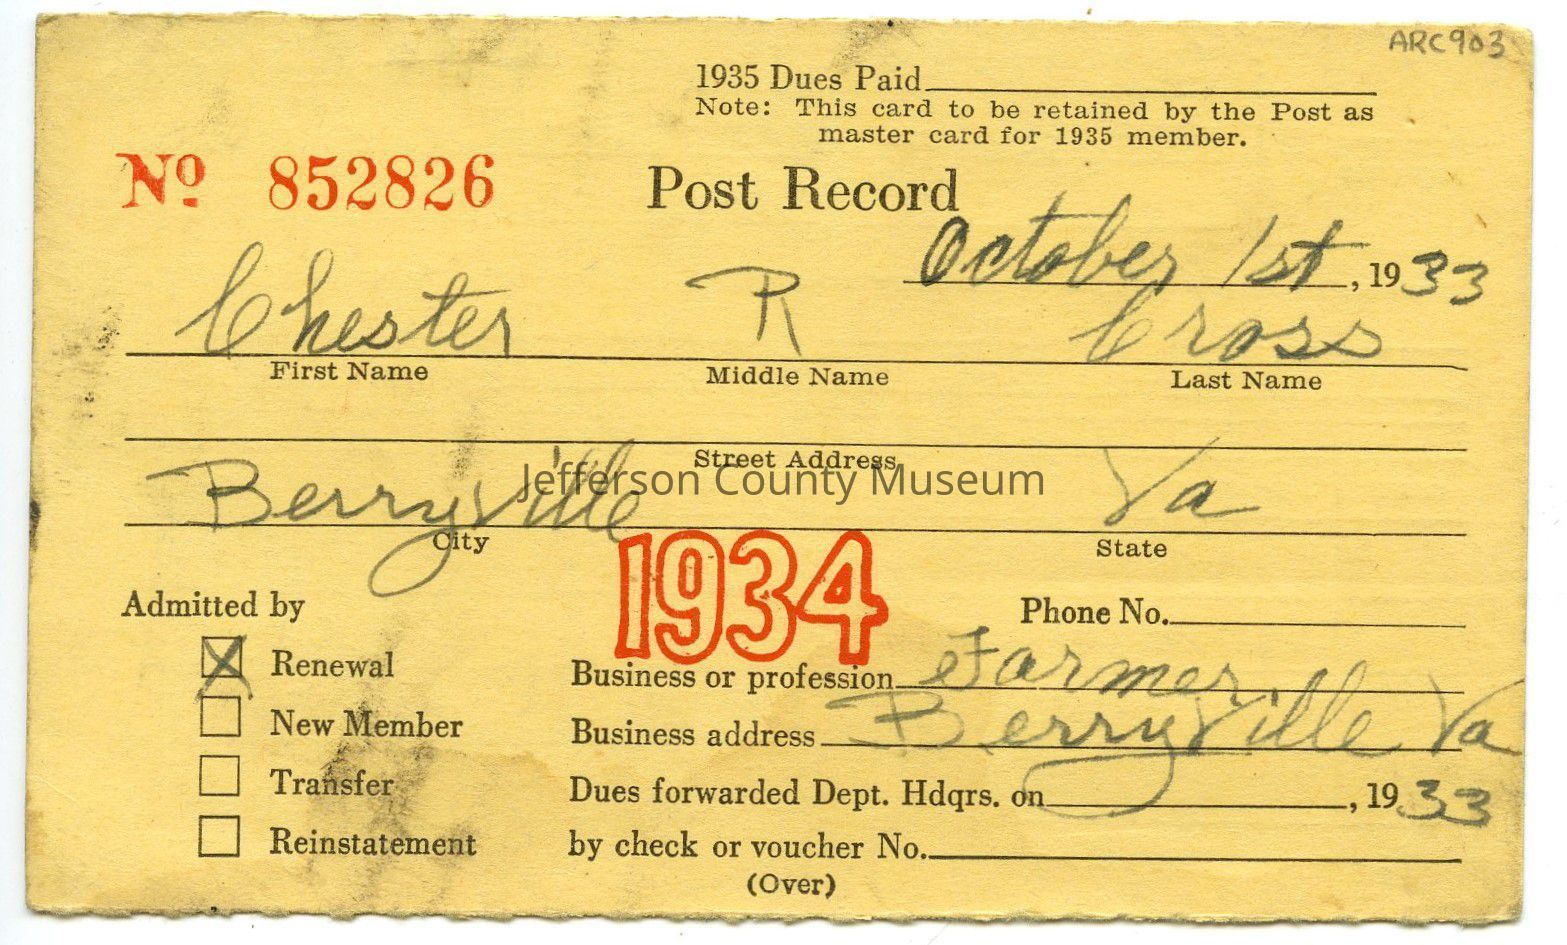 ARC903
1935 Dues Paid
Note: This card to be retained by the Post as
master card for 1935 member.
No 852826
Post Record
October 1st, 1933
Chester R Cross
First Name Middle Name Last Name
Street Address
Jefferson County Museum
Berryville Va
City State
1934
Admitted by
Phone No.
Renewal
Business or profession Farmer
New Member
Business address Berryville Va
Transfer
Dues forwarded Dept. Hdqrs. on , 1933
Reinstatement
by check or voucher No.
(Over)